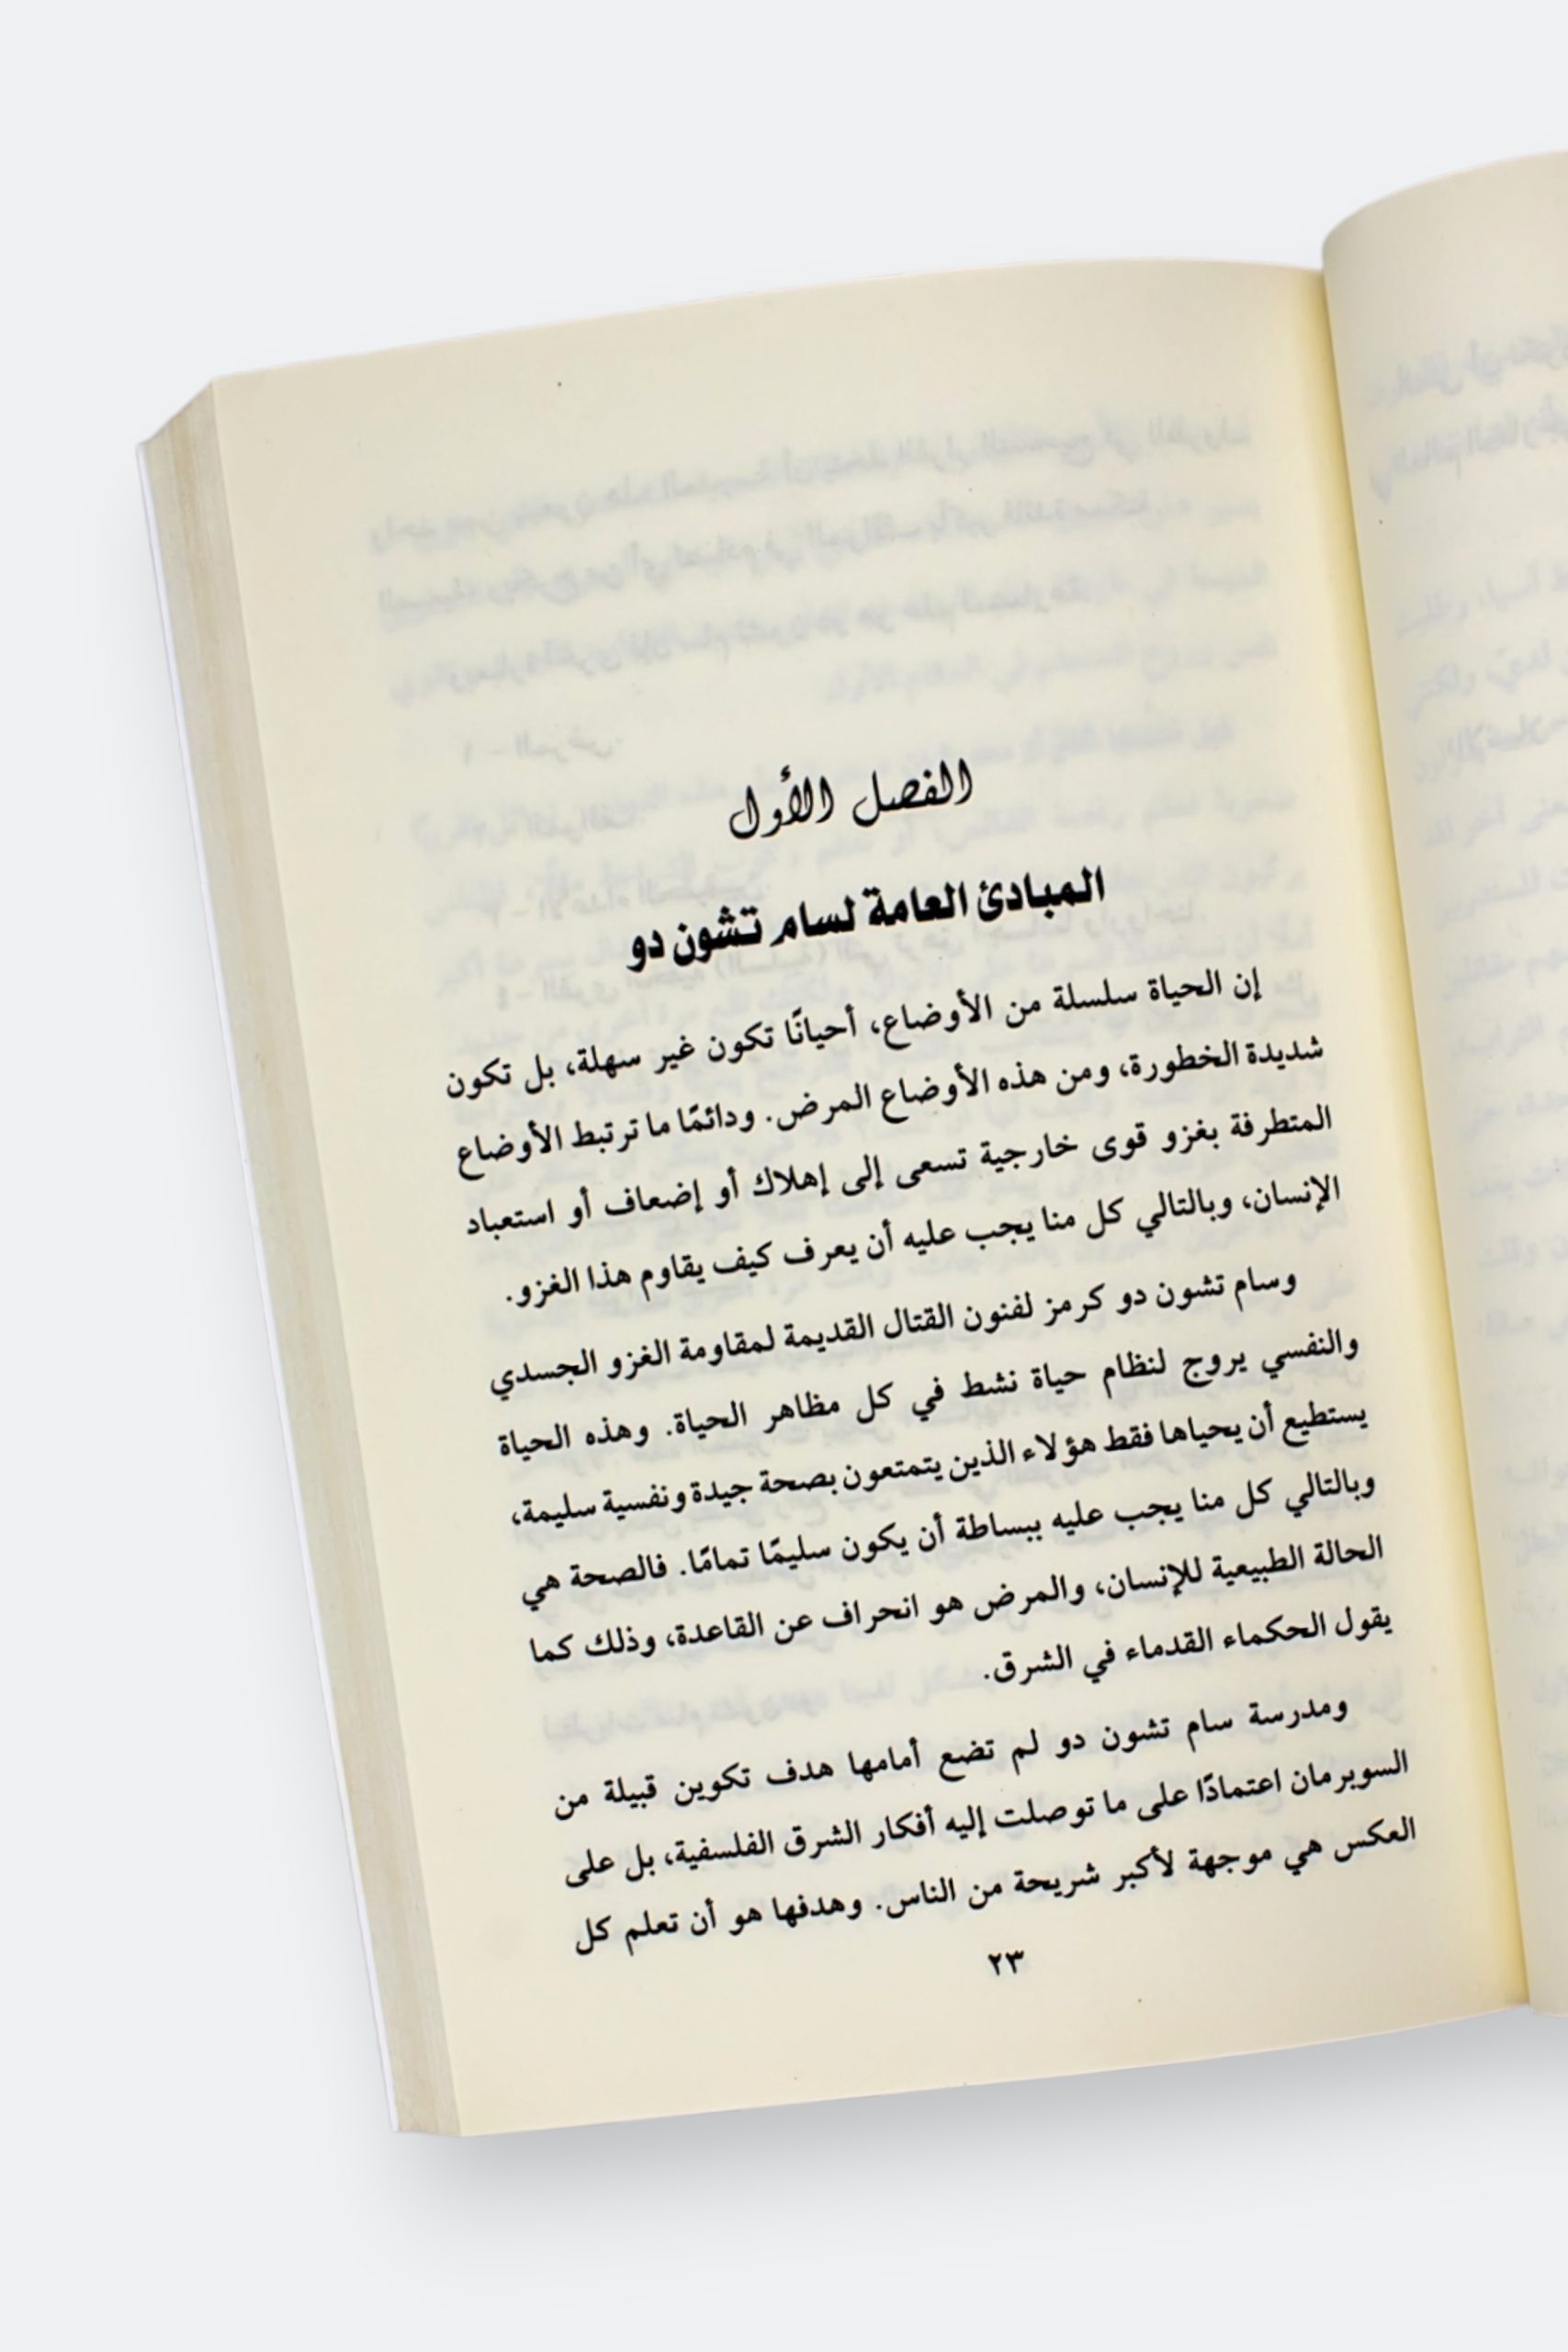 الفصل الأول
المبادئ العامة لسام تشون دو
إن الحياة سلسلة من الأوضاع، أحيانًا تكون غير سهلة، بل تكون
شديدة الخطورة، ومن هذه الأوضاع المرض. ودائمًا ما ترتبط الأوضاع
المتطرفة بغزو قوى خارجية تسعى إلى إهلاك أو إضعاف أو استعباد
الإنسان، وبالتالي كل منا يجب عليه أن يعرف كيف يقاوم هذا الغزو.
وسام تشون دو كرمز لفنون القتال القديمة لمقاومة الغزو الجسدي
والنفسي يروج لنظام حياة نشط في كل مظاهر الحياة. وهذه الحياة
يستطيع أن يحياها فقط هؤلاء الذين يتمتعون بصحة جيدة ونفسية سليمة،
وبالتالي كل منا يجب عليه ببساطة أن يكون سليمًا تمامًا. فالصحة هي
الحالة الطبيعية للإنسان، والمرض هو انحراف عن القاعدة، وذلك كما
يقول الحكماء القدماء في الشرق.
ومدرسة سام تشون دو لم تضع أمامها هدف تكوين قبيلة من
السوبرمان اعتمادًا على ما توصلت إليه أفكار الشرق الفلسفية، بل على
العكس هي موجهة لأكبر شريحة من الناس. وهدفها هو أن تعلم كل
٢٣